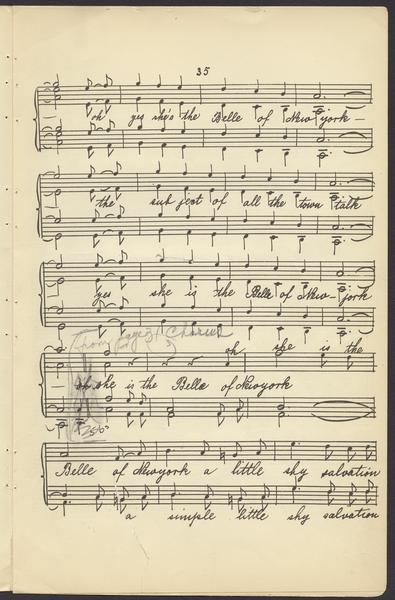 35
oh yes she's the Belle of New york—
the subject of all the town talk
yes she is the Belle of New-york
From page 31 Chorus
oh she is the
oh she is the Belle of Newyork
Belle of Newyork a little shy salvation
a simple little shy salvation